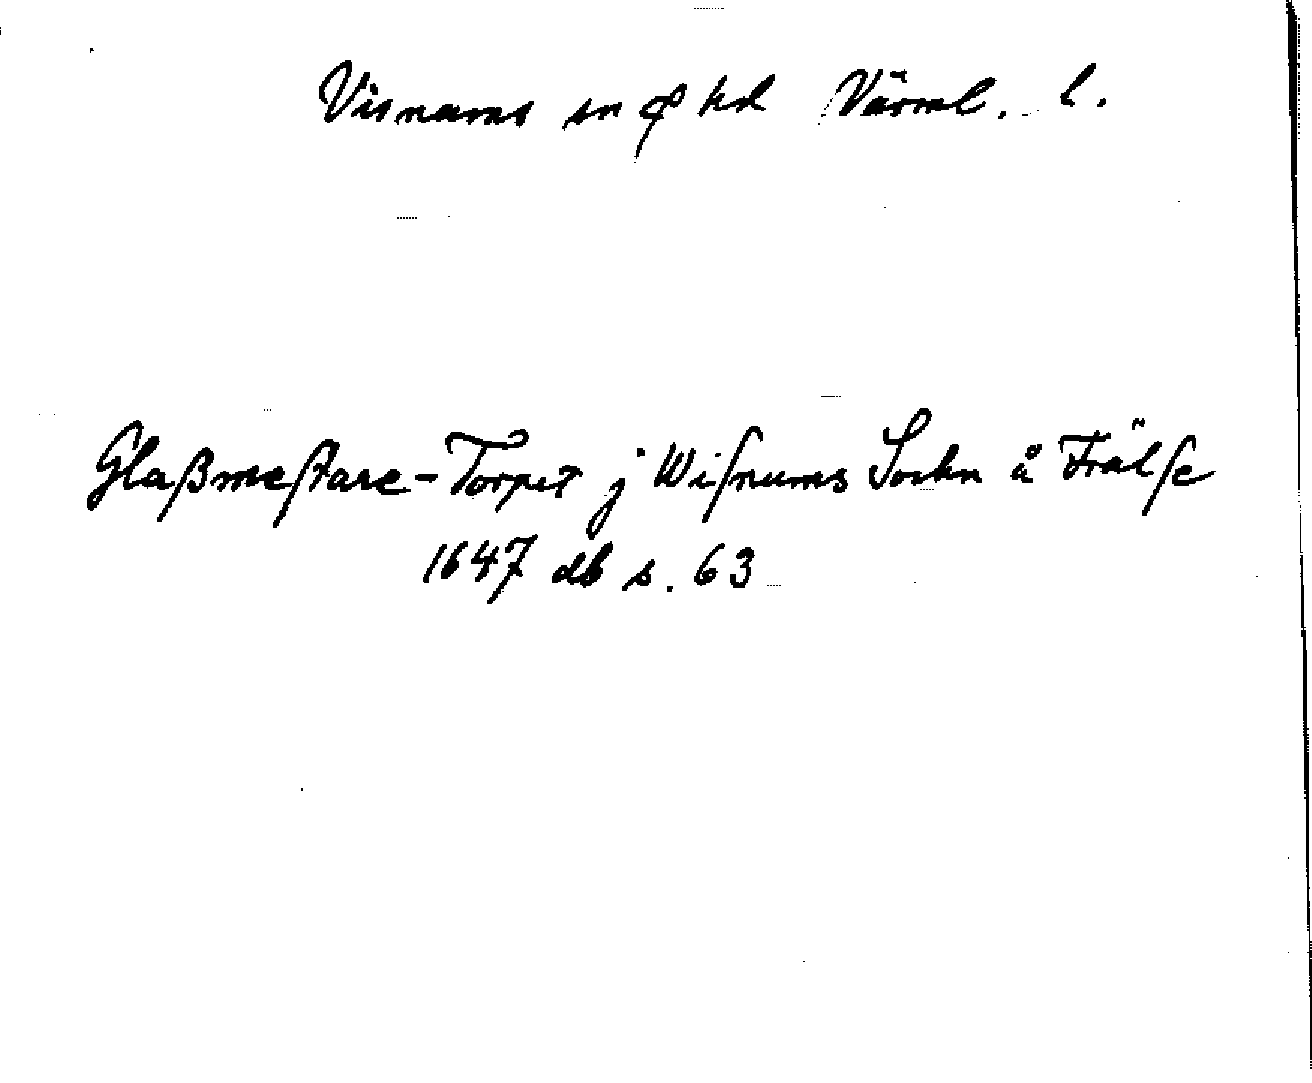 Visnums sn & hd Värml. l.
Glaßmeſtare-Torpet j Wiſnums Sochn å Frälſe
1647 db s. 63